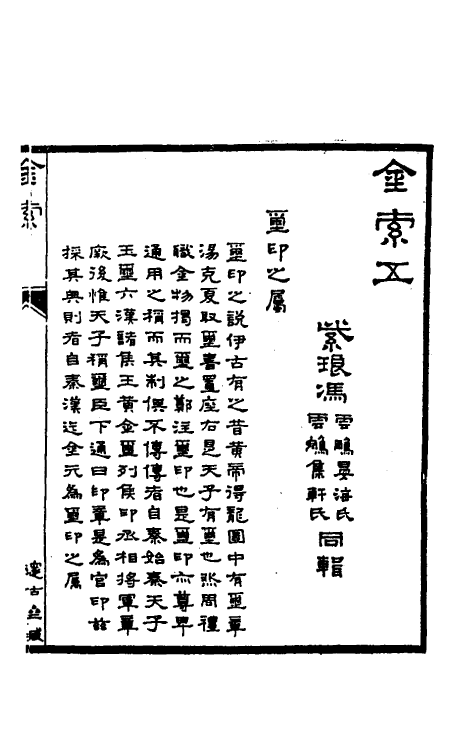 金索五
紫琅馮
雲鵬晏海氏
雲鵷集軒氏
同輯
璽印之屬
璽印之說伊古有之昔黃帝得龍圖中有璽章
湯克夏取璽書置座右是天子有璽也然周禮
職金物揭而璽之鄭注璽印也是璽印亦尊卑
通用之稱而其制俱不傳傳者自秦始秦天子
玉璽六漢諸侯王黃金璽列侯印丞相將軍章
厥後惟天子稱璽臣下通曰印章是為官印茲
採其典則者自秦漢迄金元為璽印之屬
金索
邃古齋藏